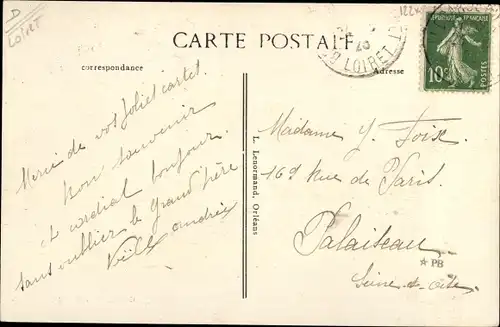 D
Loiret
CARTE POSTALE
correspondance
Adresse
LOIRET
RÉPUBLIQUE FRANÇAISE
10c
POSTES
Merci de vos jolies cartes
Bon souvenir
et cordial bonjour
sans oublier le grand père
andrée
L. Lenormand, Orléans
Madame Y. Foise
169 Rue de Paris.
Palaiseau
* PB
Seine-et-Oise